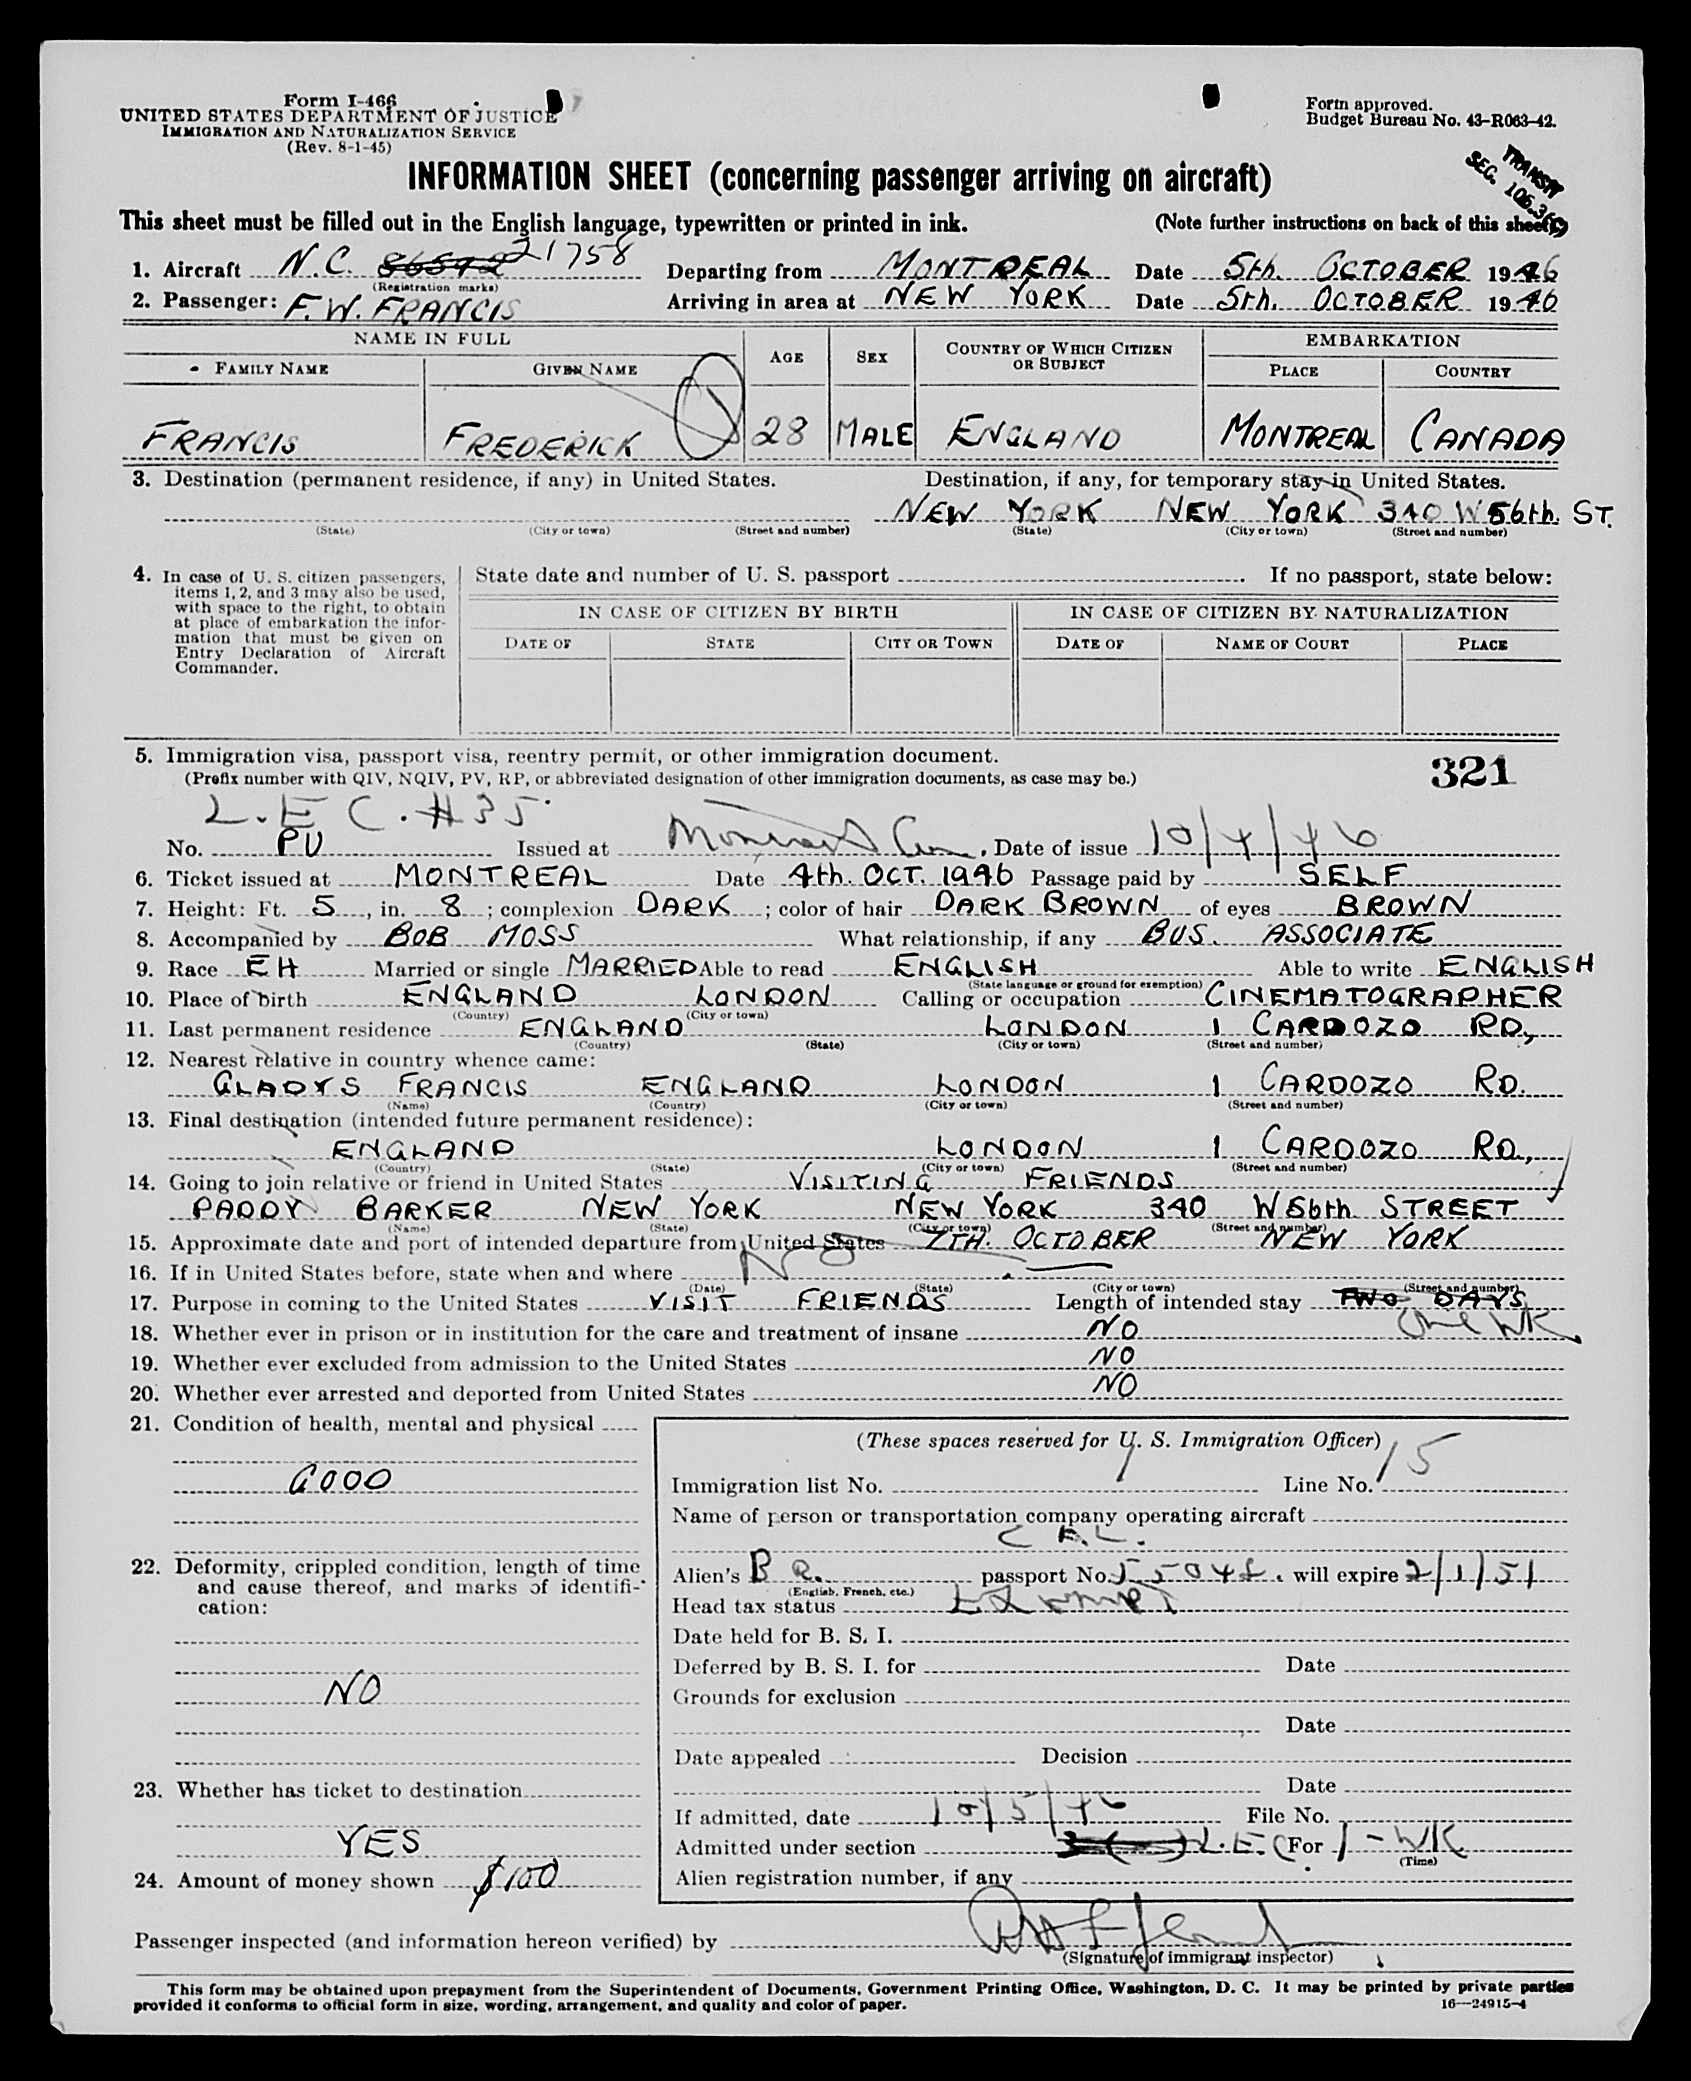 Form I-466
UNITED STATES DEPARTMENT OF JUSTICE
IMMIGRATION AND NATURALIZATION SERVICE
(Rev. 8-1-45)
Form approved.
Budget Bureau No. 43-R063-42.
TRANSIT
SEC. 106.3(C)
INFORMATION SHEET (concerning passenger arriving on aircraft)
This sheet must be filled out in the English language, typewritten or printed in ink. (Note further instructions on back of this sheet)
1. Aircraft N.C. 86592 21758 Departing from MONTREAL Date 5th. OCTOBER 1946
(Registration marks)
2. Passenger: F. W. FRANCIS Arriving in area at NEW YORK Date 5th. OCTOBER 1946
NAME IN FULL AGE SEX COUNTRY OF WHICH CITIZEN OR SUBJECT EMBARKATION
FAMILY NAME GIVEN NAME PLACE COUNTRY
FRANCIS FREDERICK 28 MALE ENGLAND MONTREAL CANADA
3. Destination (permanent residence, if any) in United States. Destination, if any, for temporary stay in United States.
NEW YORK NEW YORK 340 W 56th. ST.
(State) (City or town) (Street and number) (State) (City or town) (Street and number)
4. In case of U. S. citizen passengers, items 1, 2, and 3 may also be used, with space to the right, to obtain at place of embarkation the information that must be given on Entry Declaration of Aircraft Commander.
State date and number of U. S. passport If no passport, state below:
IN CASE OF CITIZEN BY BIRTH IN CASE OF CITIZEN BY NATURALIZATION
DATE OF STATE CITY OR TOWN DATE OF NAME OF COURT PLACE
5. Immigration visa, passport visa, reentry permit, or other immigration document.
(Prefix number with QIV, NQIV, PV, RP, or abbreviated designation of other immigration documents, as case may be.)
321
L.E C. #35
No. PV Issued at Montreal Can. Date of issue 10/4/46
6. Ticket issued at MONTREAL Date 4th. OCT. 1946 Passage paid by SELF
7. Height: Ft. 5, in. 8; complexion DARK; color of hair DARK BROWN of eyes BROWN
8. Accompanied by BOB MOSS What relationship, if any BUS. ASSOCIATE
9. Race EH Married or single MARRIED Able to read ENGLISH Able to write ENGLISH
(State language or ground for exemption)
10. Place of birth ENGLAND LONDON Calling or occupation CINEMATOGRAPHER
(Country) (City or town)
11. Last permanent residence ENGLAND LONDON 1 CARDOZO RD.,
(Country) (State) (City or town) (Street and number)
12. Nearest relative in country whence came:
GLADYS FRANCIS ENGLAND LONDON 1 CARDOZO RD.
(Name) (Country) (City or town) (Street and number)
13. Final destination (intended future permanent residence):
ENGLAND LONDON 1 CARDOZO RD.,
(Country) (State) (City or town) (Street and number)
14. Going to join relative or friend in United States VISITING FRIENDS
PADDY BARKER NEW YORK NEW YORK 340 W56th STREET
(Name) (State) (City or town) (Street and number)
15. Approximate date and port of intended departure from United States 7TH. OCTOBER NEW YORK
16. If in United States before, state when and where No
(Date) (State) (City or town) (Street and number)
17. Purpose in coming to the United States VISIT FRIENDS Length of intended stay TWO DAYS
One WK.
18. Whether ever in prison or in institution for the care and treatment of insane NO
19. Whether ever excluded from admission to the United States NO
20. Whether ever arrested and deported from United States NO
21. Condition of health, mental and physical
GOOD
22. Deformity, crippled condition, length of time and cause thereof, and marks of identification:
NO
23. Whether has ticket to destination
YES
24. Amount of money shown $100
(These spaces reserved for U. S. Immigration Officer)
Immigration list No. 1 Line No. 15
Name of person or transportation company operating aircraft
C A.L.
Alien's B R. passport No. will expire 2/1/51
(English, French, etc.)
Head tax status Exempt
Date held for B. S. I.
Deferred by B. S. I. for Date
Grounds for exclusion
Date
Date appealed Decision
Date
If admitted, date 10/5/46 File No.
Admitted under section L.E.C For 1-WK
(Time)
Alien registration number, if any
Passenger inspected (and information hereon verified) by
(Signature of immigrant inspector)
This form may be obtained upon prepayment from the Superintendent of Documents, Government Printing Office, Washington, D. C. It may be printed by private parties
provided it conforms to official form in size, wording, arrangement, and quality and color of paper. 16—24915-4